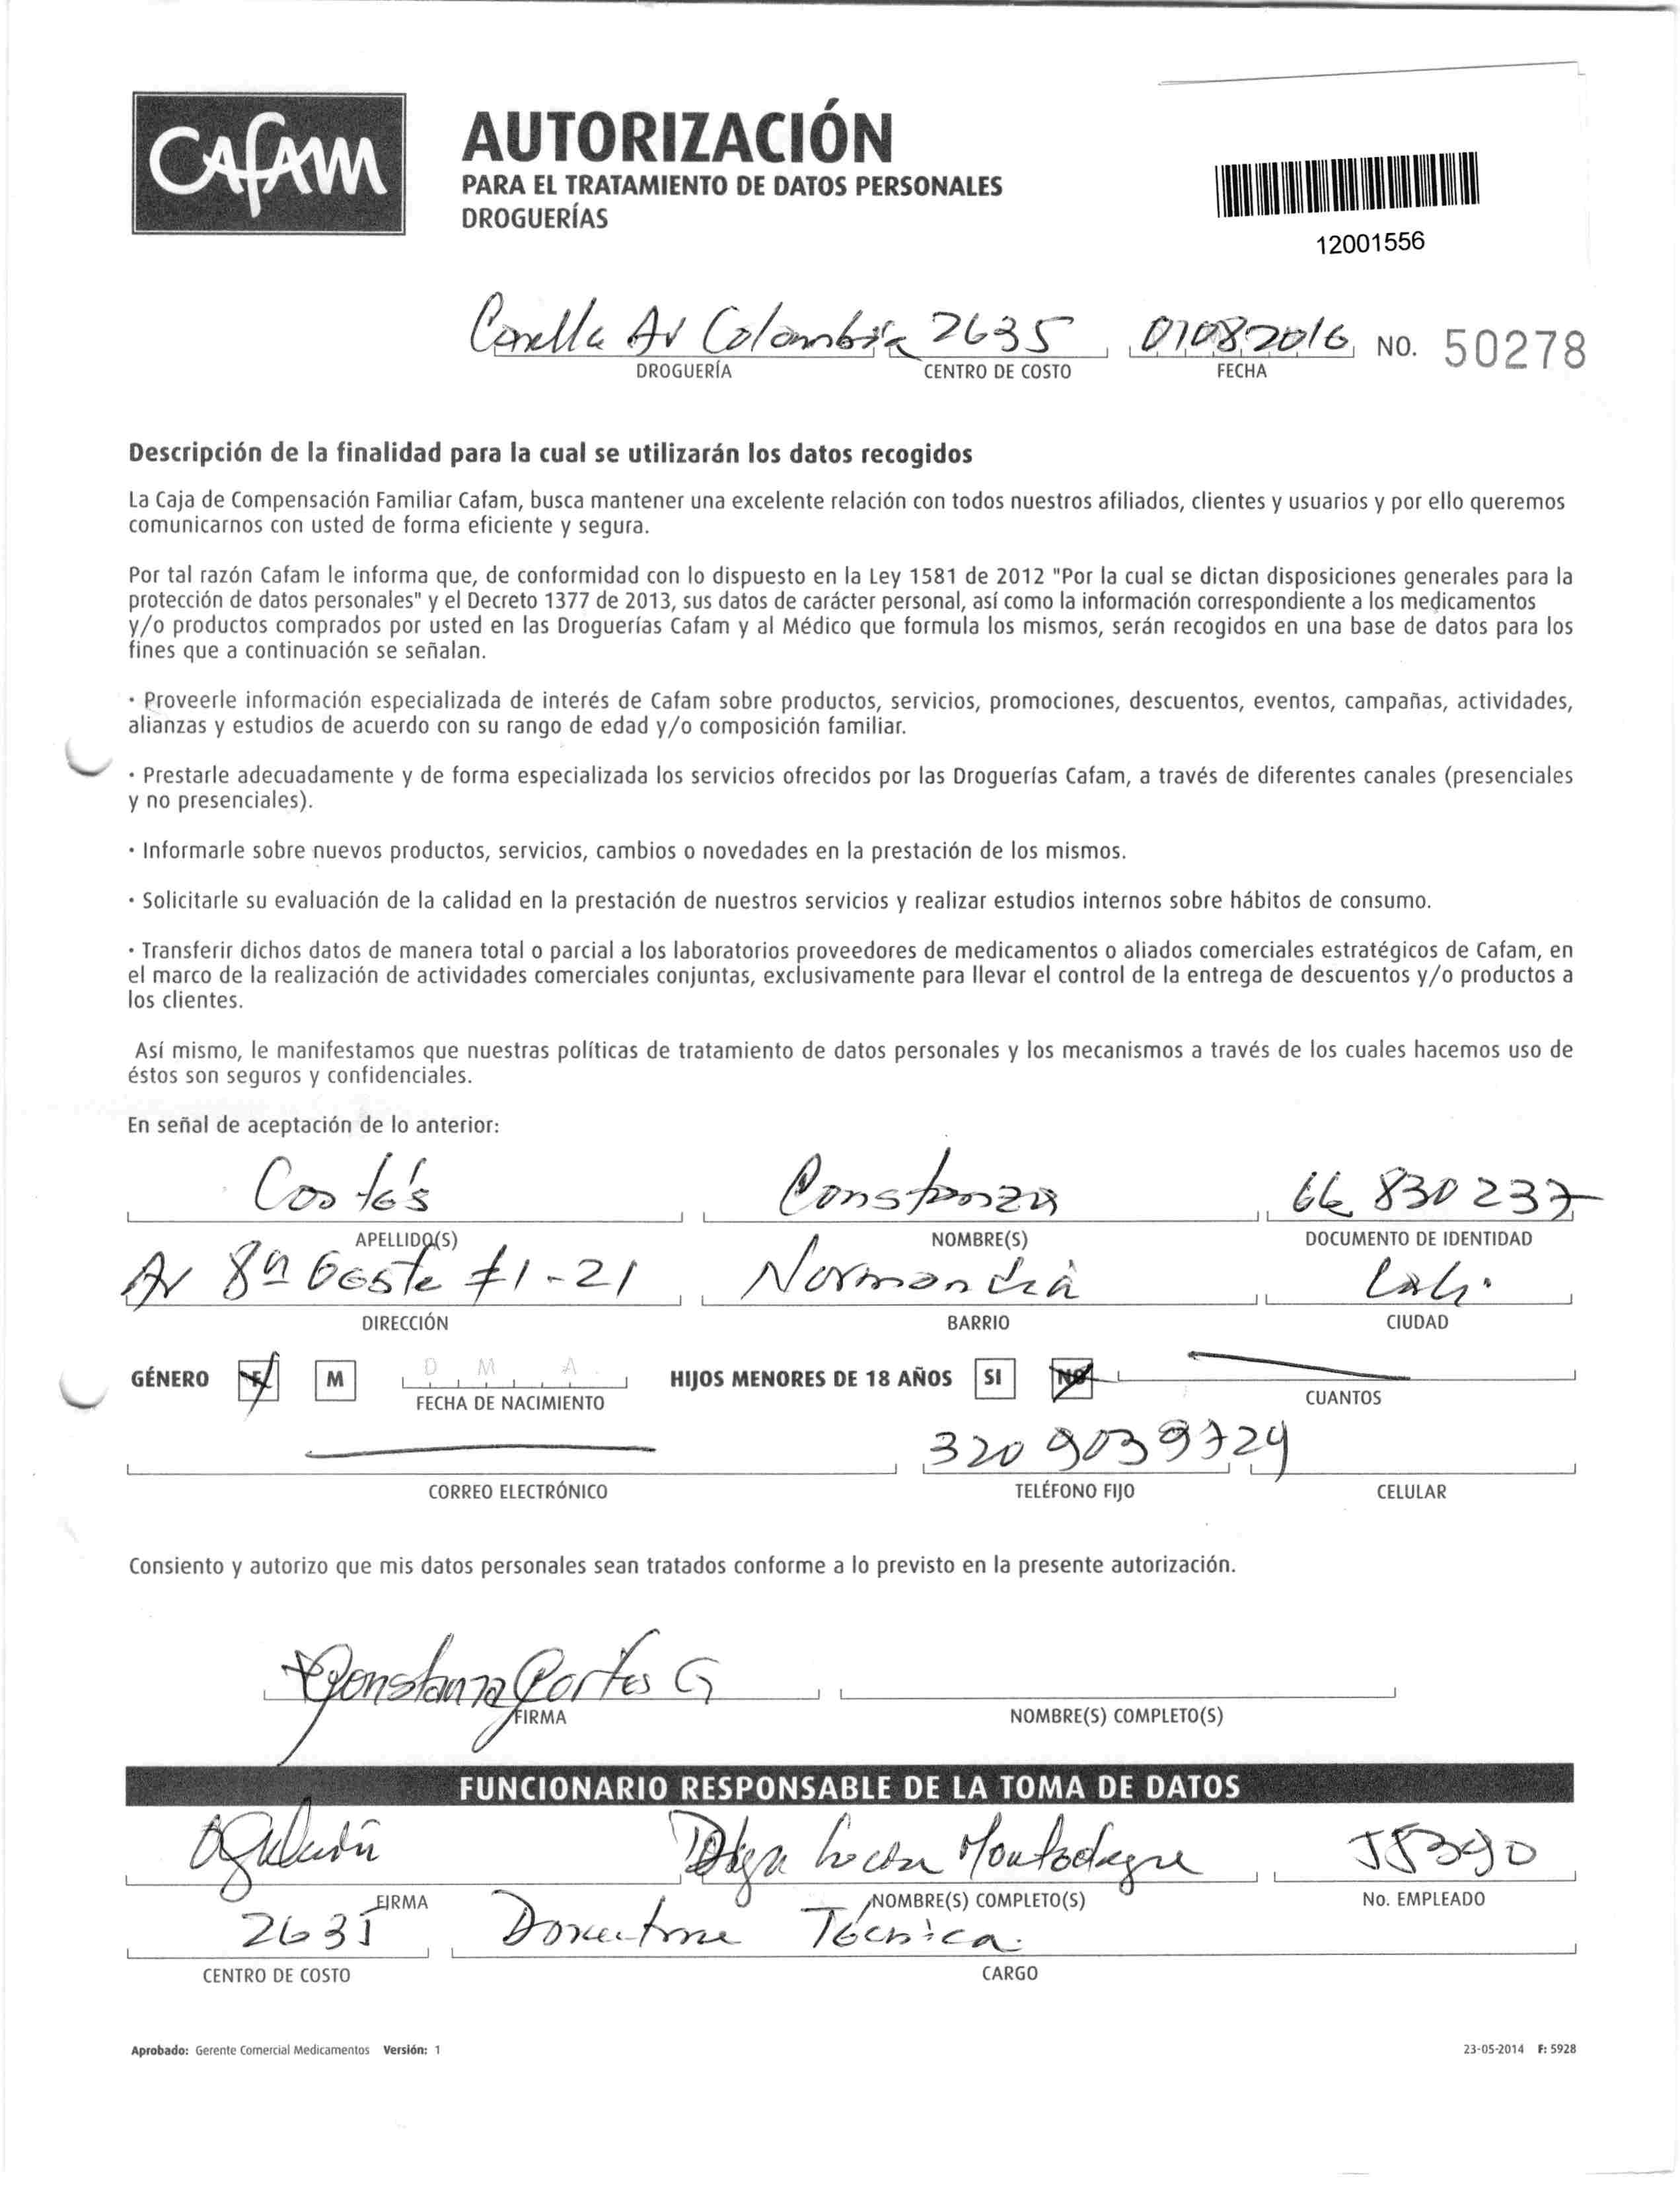 CAFAM
AUTORIZACIÓN
PARA EL TRATAMIENTO DE DATOS PERSONALES
DROGUERÍAS
12001556
Av Colombia 2635 01082016 NO. 50278
DROGUERÍA CENTRO DE COSTO FECHA
Descripción de la finalidad para la cual se utilizarán los datos recogidos
La Caja de Compensación Familiar Cafam, busca mantener una excelente relación con todos nuestros afiliados, clientes y usuarios y por ello queremos
comunicarnos con usted de forma eficiente y segura.
Por tal razón Cafam le informa que, de conformidad con lo dispuesto en la Ley 1581 de 2012 "Por la cual se dictan disposiciones generales para la
protección de datos personales" y el Decreto 1377 de 2013, sus datos de carácter personal, así como la información correspondiente a los medicamentos
y/o productos comprados por usted en las Droguerías Cafam y al Médico que formula los mismos, serán recogidos en una base de datos para los
fines que a continuación se señalan.
· Proveerle información especializada de interés de Cafam sobre productos, servicios, promociones, descuentos, eventos, campañas, actividades,
alianzas y estudios de acuerdo con su rango de edad y/o composición familiar.
· Prestarle adecuadamente y de forma especializada los servicios ofrecidos por las Droguerías Cafam, a través de diferentes canales (presenciales
y no presenciales).
· Informarle sobre nuevos productos, servicios, cambios o novedades en la prestación de los mismos.
· Solicitarle su evaluación de la calidad en la prestación de nuestros servicios y realizar estudios internos sobre hábitos de consumo.
· Transferir dichos datos de manera total o parcial a los laboratorios proveedores de medicamentos o aliados comerciales estratégicos de Cafam, en
el marco de la realización de actividades comerciales conjuntas, exclusivamente para llevar el control de la entrega de descuentos y/o productos a
los clientes.
Así mismo, le manifestamos que nuestras políticas de tratamiento de datos personales y los mecanismos a través de los cuales hacemos uso de
éstos son seguros y confidenciales.
En señal de aceptación de lo anterior:
Cortés Constanza 66 830 237
APELLIDO(S) NOMBRE(S) DOCUMENTO DE IDENTIDAD
Av 8ª Oeste #1-21 Normandia Cali.
DIRECCIÓN BARRIO CIUDAD
GÉNERO F M D M A HIJOS MENORES DE 18 AÑOS SI NO
FECHA DE NACIMIENTO CUANTOS
320 9039724
CORREO ELECTRÓNICO TELÉFONO FIJO CELULAR
Consiento y autorizo que mis datos personales sean tratados conforme a lo previsto en la presente autorización.
Constanza Cortes G
FIRMA NOMBRE(S) COMPLETO(S)
FUNCIONARIO RESPONSABLE DE LA TOMA DE DATOS
Lucia
FIRMA NOMBRE(S) COMPLETO(S) No. EMPLEADO
2635 Técnica.
CENTRO DE COSTO CARGO
Aprobado: Gerente Comercial Medicamentos Versión: 1 23-05-2014 F: 5928